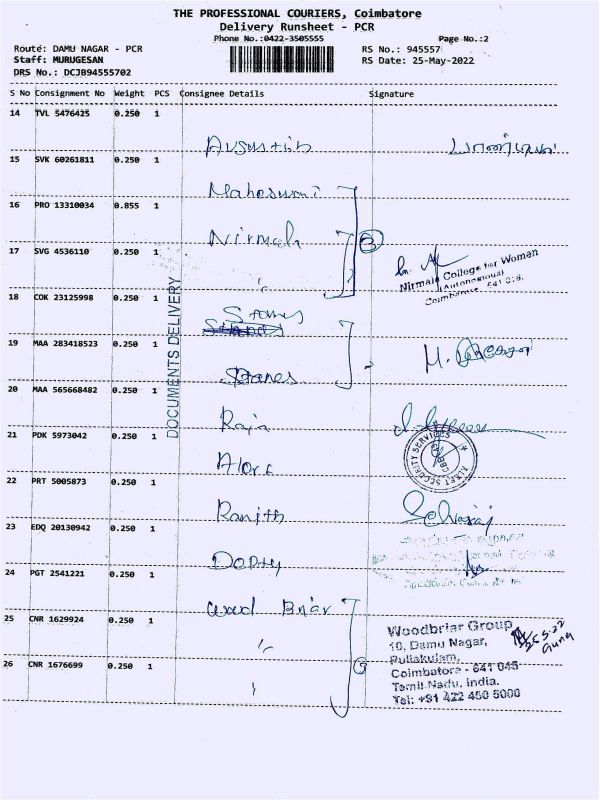 THE PROFESSIONAL COURIERS, Coimbatore
Delivery Runsheet - PCR
Phone No.:0422-3505555 Page No.:2
Route: DAMU NAGAR - PCR RS No.: 945557
Staff: MURUGESAN RS Date: 25-May-2022
DRS No.: DCJB94555702
S No Consignment No Weight PCS Consignee Details Signature
14 TVL 5476425 0.250 1
Augustin
15 SVK 60261811 0.250 1
Maheswari
16 PRO 13310034 0.855 1
Nirmala 3
17 SVG 4536110 0.250 1
Nirmala College for Women
(Autonomous)
Coimbatore - 641 018.
18 COK 23125998 0.250 1
DOCUMENTS DELIVERY
Stanes
19 MAA 283418523 0.250 1
Stanes
20 MAA 565668482 0.250 1
Raja
21 PDK 5973042 0.250 1
ALERT SECURITY SERVICES
CBE
22 PRT 5005873 0.250 1
Ranjith Selvaraj
23 EDQ 20130942 0.250 1
24 PGT 2541221 0.250 1
Wood Briar
25 CNR 1629924 0.250 1
Woodbriar Group
10, Damu Nagar,
Puliakulam,
26 CNR 1676699 0.250 1 3
Coimbatore - 641 045
Tamil Nadu, India.
Tel: +91 422 450 5000